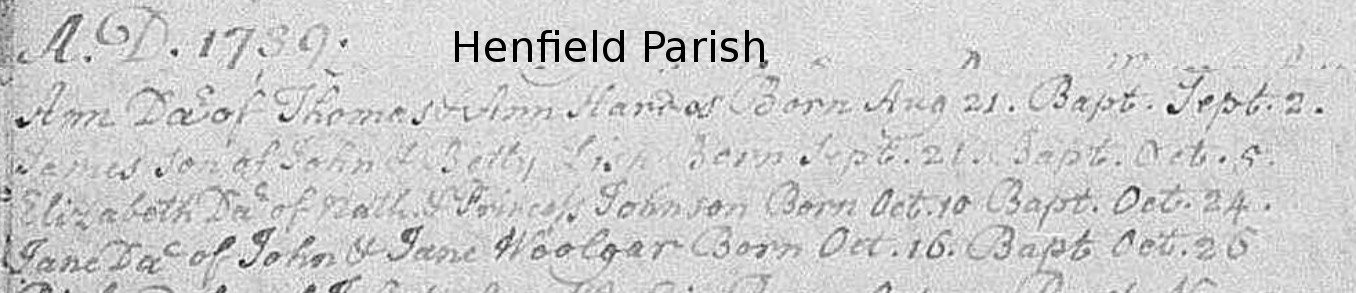 A.D. 1739.
Henfield Parish
Ann Dar of Thomas & Ann Hardes Born Aug 21. Bapt. Sept. 2.
James Son of John & Betty Born Sept. 21. Bapt. Oct. 5.
Elizabeth Dar of Nath. & Princess Johnson Born Oct. 10 Bapt. Oct. 24.
Jane Dar of John & Jane Woolgar Born Oct. 16. Bapt Oct. 26